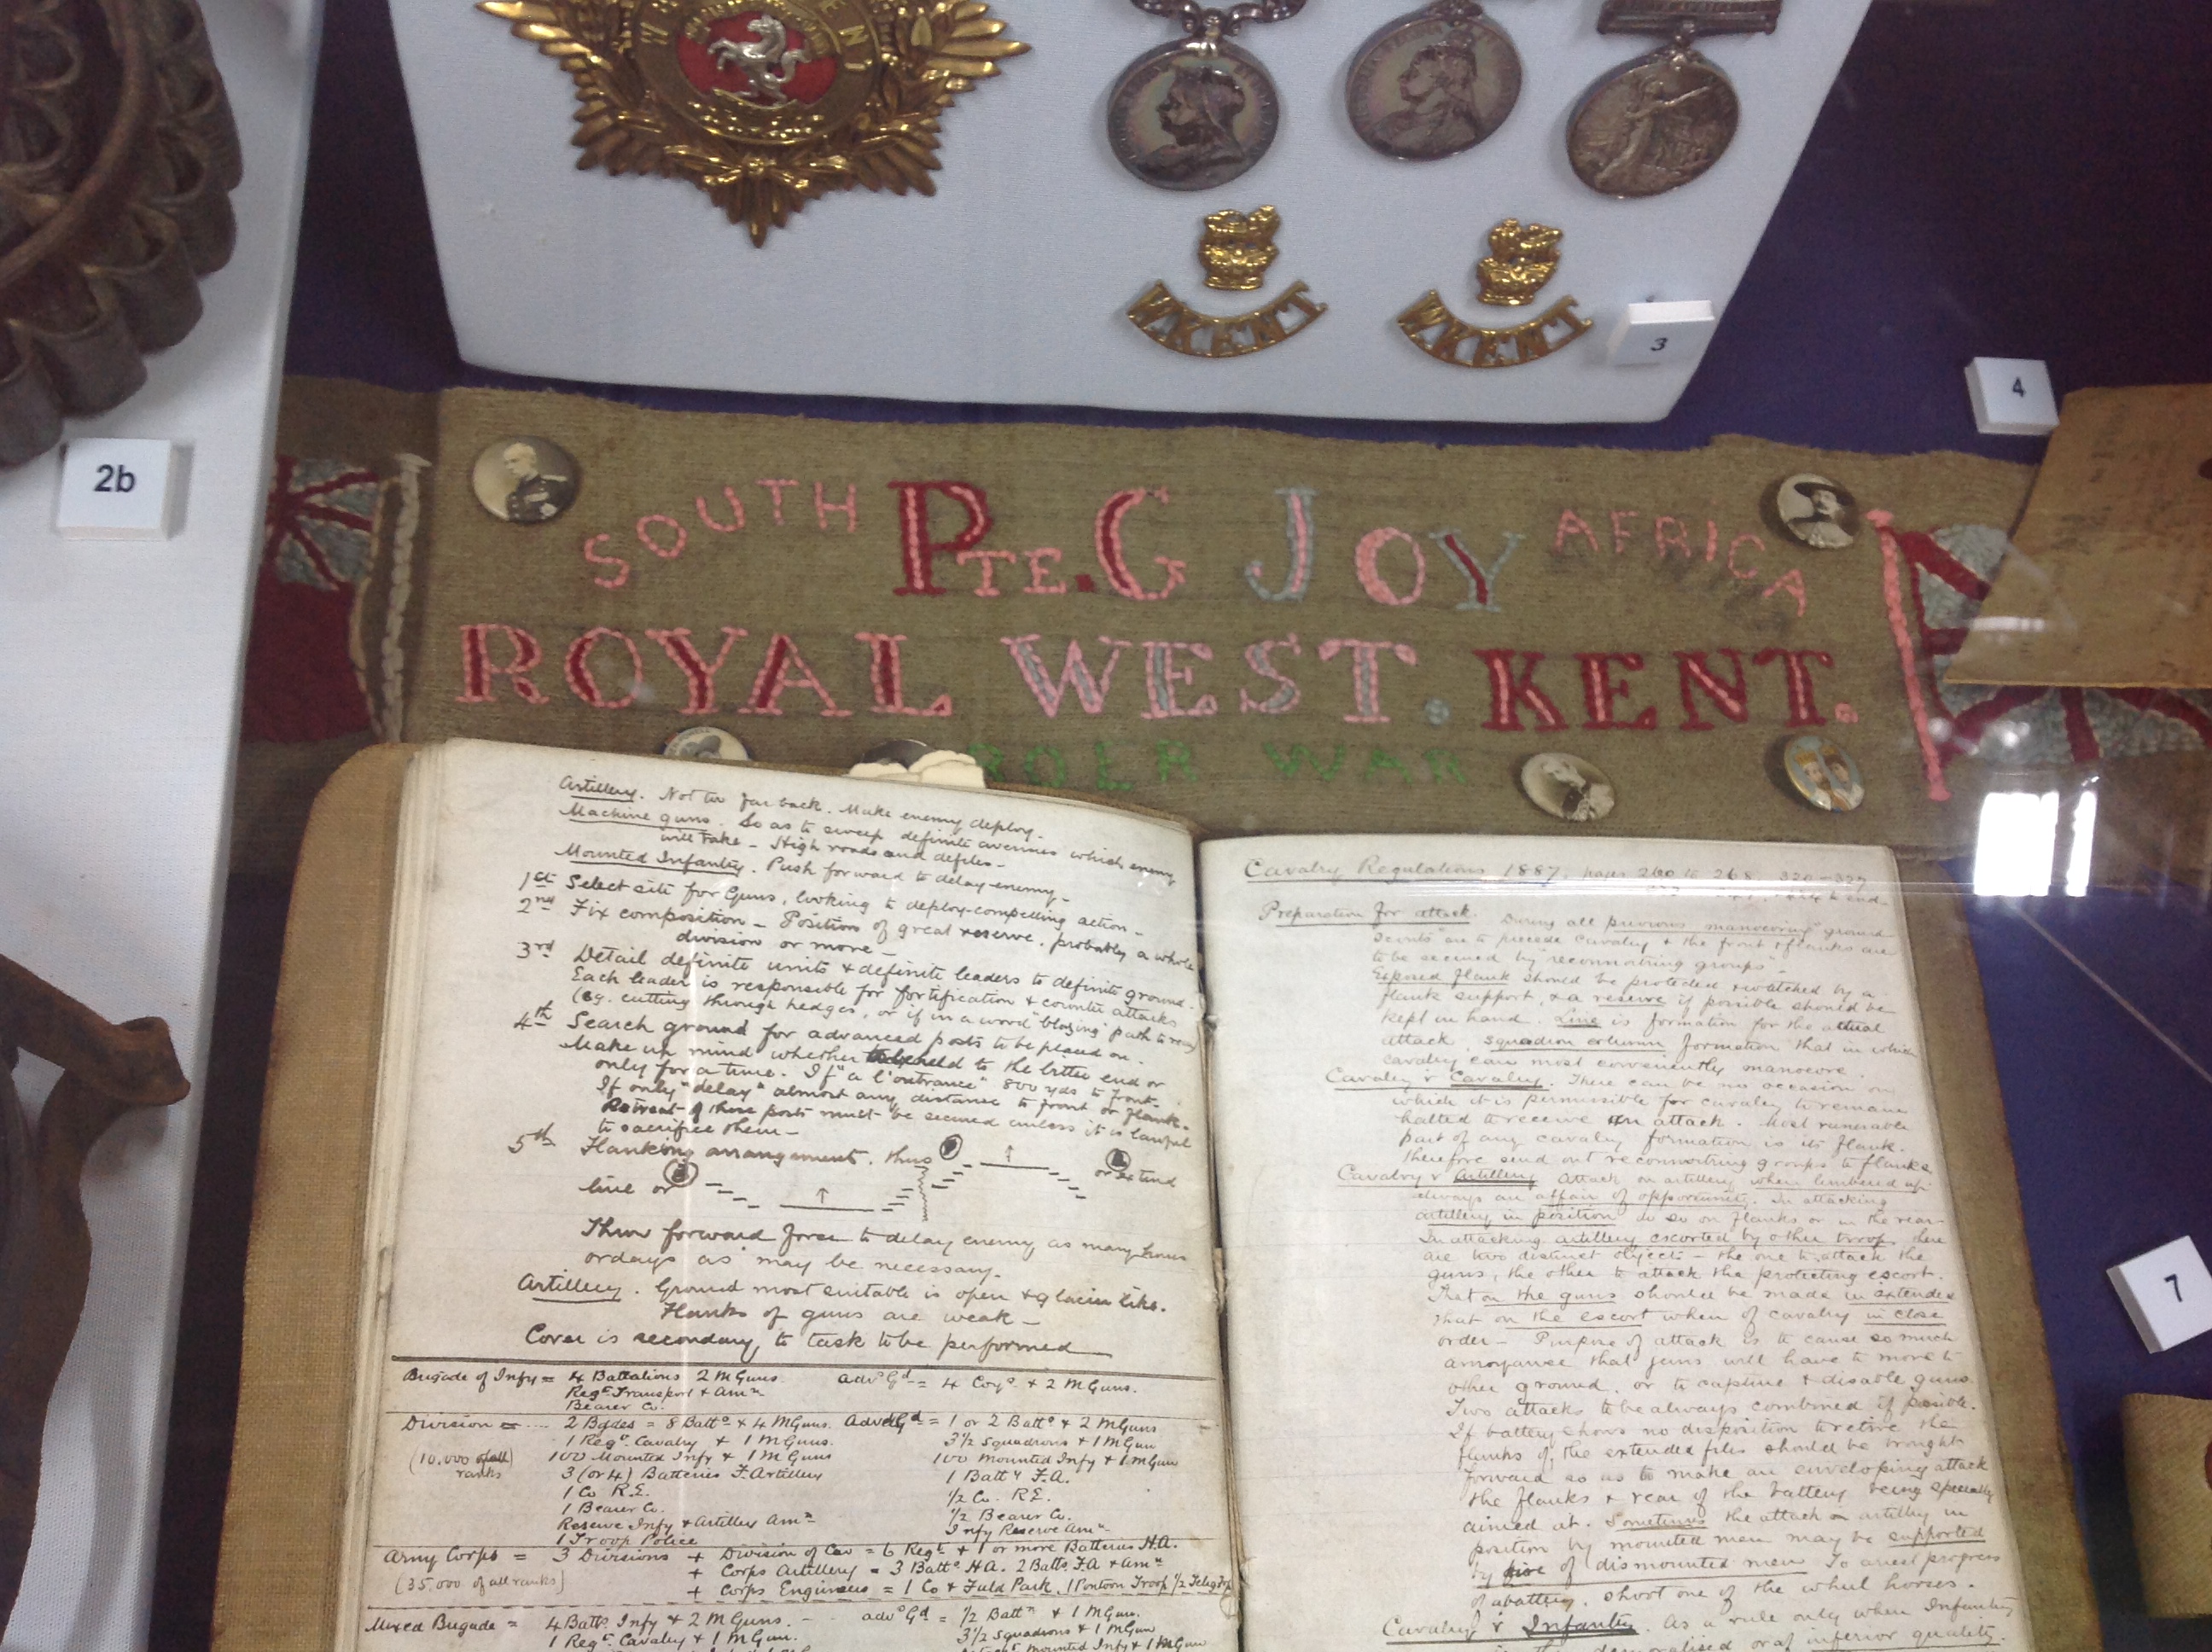 W.KENT
W.KENT
3
4
2b
SOUTH PTE.G JOY AFRICA
ROYAL WEST. KENT.
BOER WAR
7
Artillery. Not too far back. Make enemy deploy.
Machine guns. So as to sweep definite avenues which enemy
will take - High roads and defiles -
Mounted Infantry. Push forward to delay enemy -
1st Select site for Guns, looking to deploy-compelling action -
2nd Fix composition - Position of great reserve, probably a whole
division or more -
3rd Detail definite units & definite leaders to definite ground.
Each leader is responsible for fortification & counter attacks
(eg. cutting through hedges, or if in a wood "blazing" path to
4th Search ground for advanced posts to be placed on.
Make up mind whether to the bitter end or
only for a time. If "a l'outrance" 800 yds to front.
If only "delay" almost any distance to front or flank.
Retreat of these posts must be secured unless it is lawful
to sacrifice them -
5th Flanking arrangement. thus or extend
line or
Throw forward force to delay enemy as many hours
or days as may be necessary.
Artillery. Ground most suitable is open & glacis like.
Flanks of guns are weak -
Cover is secondary to task to be performed
Brigade of Infy = 4 Battalions 2 M Guns. Advd Gd = 4 Coys. + 2 M Guns.
Regt Transport + Amn
Bearer Co.
Division = 2 Bgdes = 8 Batts + 4 M Guns. Advd Gd = 1 or 2 Batts + 2 M Guns
1 Regt. Cavalry + 1 M Guns. 3½ Squadrons + 1 M Gun
(10.000 of all ranks) 100 Mounted Infy + 1 M Guns 100 Mounted Infy + 1 M Gun
3 (or 4) Batteries F. Artillery 1 Batty F.A.
1 Co R.E. ½ Co. R.E.
1 Bearer Co. ½ Bearer Co.
Reserve Infy & Artillery Amn Infy Reserve Amn
1 Troop Police
Army Corps = 3 Divisions + Division of Cav = 6 Regts + 1 or more Batteries H.A.
(35,000 of all ranks) + Corps Artillery = 3 Batts H.A. 2 Batts F.A + Amn
+ Corps Engineers = 1 Co + Field Park, 1 Pontoon Troop ½ Teleg Trp
Mixed Brigade = 4 Batts. Infy + 2 M Guns. - advd Gd = ½ Battn + 1 M Gun.
1 Regt. Cavalry + 1 M Gun. 3½ Squadrons + 1 M Gun
Mounted Infy + 1 M Gun
Cavalry Regulations 1887, pages 260 to 268, 320-327
to end-
Preparation for attack. During all previous manoeuvring "ground
scouts" are to precede Cavalry & the front & flanks are
to be secured by "reconnoitring groups".
Exposed flank should be protected & watched by a
flank support, & a reserve if possible should be
kept in hand. Line is formation for the actual
attack, squadron column formation that in which
cavalry can most conveniently manoevre.
Cavalry v Cavalry. There can be no occasion on
which it is permissible for cavalry to remain
halted to receive an attack. Most vunerable
part of any cavalry formation is its flank.
therefore send out reconnoitring groups to flanks.
Cavalry v Artillery Attack on artillery when limbered up
always an affair of opportunity. In attacking
artillery in position do so on flanks or in the rear
In attacking artillery escorted by other troops there
are two distinct objects - the one to attack the
guns, the other to attack the protecting escort.
That on the guns should be made in extended
that on the escort when of cavalry in close
order - Purpose of attack is to cause so much
annoyance that guns will have to move to
other ground, or to capture & disable guns.
Two attacks to be always combined if possible.
If battery shows no disposition to retire the
flanks of the extended files should be brought
forward so as to make an enveloping attack
the flanks & rear of the battery being specially
aimed at. Sometimes the attack on artillery in
position by mounted men may be supported
by fire of dismounted men To arrest progress
of a battery, shoot one of the wheel horses.
Cavalry v Infantry. As a rule only when Infantry
demoralised or of inferior quality